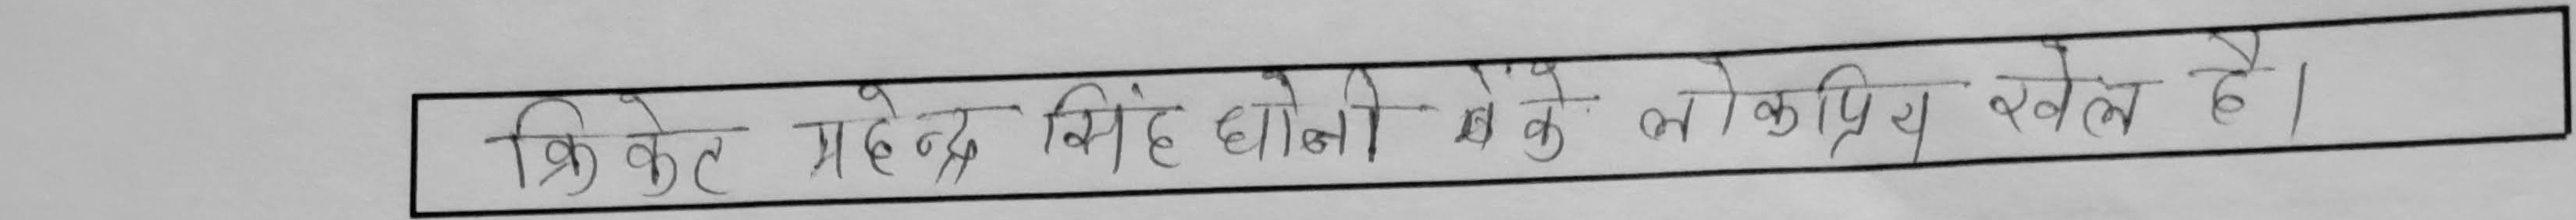 क्रिकेट महेन्द्र सिंह धोनी के लोकप्रिय खेल है।